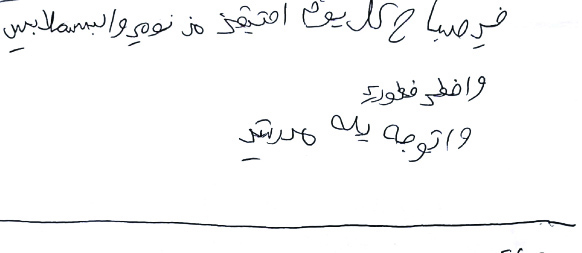 في صباح كل يوم استيقظ من نومي والبس ملابسي
وافطر فطوري
واتوجه إلى مدرستي